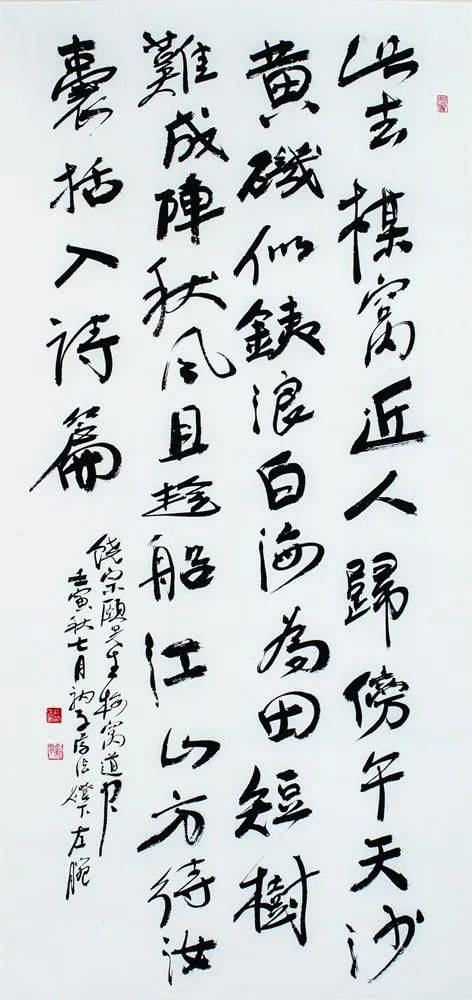 此去楳窩近人歸傍午天沙
黄磯似銕浪白海為田短樹
難成陣秋風且趁船江山方待汝
囊括入詩篇
饒宗頤先生梅窩道中
壬寅秋七月衲子燈下左腕